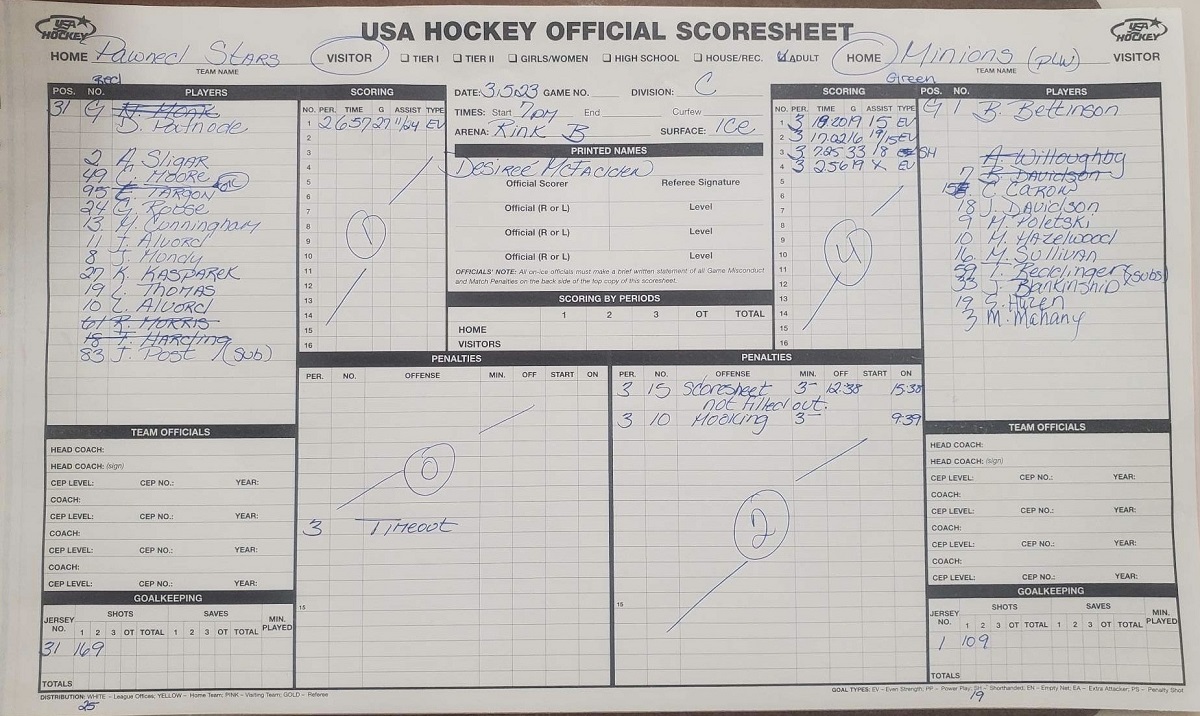 USA HOCKEY
USA HOCKEY OFFICIAL SCORESHEET
USA HOCKEY
HOME Pawned Stars VISITOR
TEAM NAME
TIER I TIER II GIRLS/WOMEN HIGH SCHOOL HOUSE/REC. ADULT
HOME Minions (PLW) VISITOR
TEAM NAME
Red
Green
POS. NO. PLAYERS
31 G N. Monk
D. Patnode
2 A. Sligar
49 C. Moore
95 E. Targon
24 G. Rouse
13 M. Cunningham
11 J. Alvord
8 J. Mundy
27 K. KASPAREK
19 L. THOMAS
10 C. Alvord
61 R. MORRIS
18 T. Harding
83 J. Post (Sub)
SCORING
NO. PER. TIME G ASSIST TYPE
1 2 657 27 11/24 EV
2
3
4
5
6
7
8
9
10
11
12
13
14
15
16
1
DATE: 3.5.23 GAME NO. DIVISION: C
TIMES: Start 7pm End Curfew
ARENA: Rink B SURFACE: ICE
PRINTED NAMES
Desireé McFadden
Official Scorer Referee Signature
Official (R or L) Level
Official (R or L) Level
Official (R or L) Level
OFFICIALS' NOTE: All on-ice officials must make a brief written statement of all Game Misconduct
and Match Penalties on the back side of the top copy of this scoresheet.
SCORING BY PERIODS
1 2 3 OT TOTAL
HOME
VISITORS
SCORING
NO. PER. TIME G ASSIST TYPE
1 3 1820 19 15 EV
2 3 1702 16 19/15 EV
3 3 785 33 18 SH
4 3 256 19 X EV
5
6
7
8
9
10
11
12
13
14
15
16
4
POS. NO. PLAYERS
G 1 B. Bettinson
A. Willoughby
7 B. Davidson
15 C. Caron
18 J. Davidson
9 M. Poletski
10 M. Hazelwood
16 M. Sullivan
59 T. Redclinger (Subs)
33 J. Blankinship
19 S. Huzen
3 M. Mahany
PENALTIES
PER. NO. OFFENSE MIN. OFF START ON
0
3 Timeout
15
PENALTIES
PER. NO. OFFENSE MIN. OFF START ON
3 15 Scoresheet 3- 12:38 15:38
not filled out.
3 10 Hooking 3- 9:39
2
15
TEAM OFFICIALS
HEAD COACH:
HEAD COACH: (sign)
CEP LEVEL: CEP NO.: YEAR:
COACH:
CEP LEVEL: CEP NO.: YEAR:
COACH:
CEP LEVEL: CEP NO.: YEAR:
COACH:
CEP LEVEL: CEP NO.: YEAR:
GOALKEEPING
JERSEY NO. SHOTS SAVES MIN. PLAYED
1 2 3 OT TOTAL 1 2 3 OT TOTAL
31 16 9
TOTALS
TEAM OFFICIALS
HEAD COACH:
HEAD COACH: (sign)
CEP LEVEL: CEP NO.: YEAR:
COACH:
CEP LEVEL: CEP NO.: YEAR:
COACH:
CEP LEVEL: CEP NO.: YEAR:
COACH:
CEP LEVEL: CEP NO.: YEAR:
GOALKEEPING
JERSEY NO. SHOTS SAVES MIN. PLAYED
1 2 3 OT TOTAL 1 2 3 OT TOTAL
1 10 9
TOTALS
DISTRIBUTION: WHITE – League Offices; YELLOW – Home Team; PINK – Visiting Team; GOLD – Referee
GOAL TYPES: EV – Even Strength; PP – Power Play; SH – Shorthanded; EN – Empty Net; EA – Extra Attacker; PS – Penalty Shot
25
19